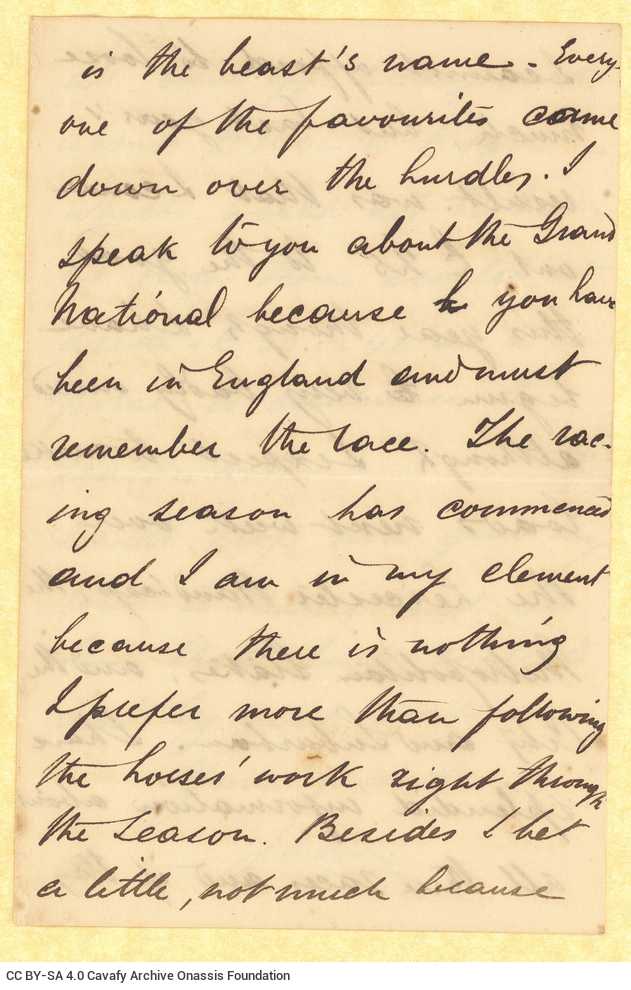 is the beast's name - Every-
one of the favourites came
down over the hurdles. I
speak to you about the Grand
National because you have
been in England and must
remember the race. The rac-
ing season has commenced
and I am in my element
because there is nothing
I prefer more than following
the horses' work right through
the season. Besides I bet
a little, not much because
CC BY-SA 4.0 Cavafy Archive Onassis Foundation